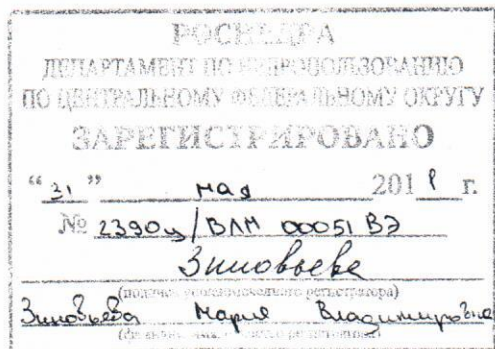 РОСНЕДРА
ДЕПАРТАМЕНТ ПО НЕДРОПОЛЬЗОВАНИЮ
ПО ЦЕНТРАЛЬНОМУ ФЕДЕРАЛЬНОМУ ОКРУГУ
ЗАРЕГИСТРИРОВАНО
“31” мая 2018 г.
№ 2390ц/ВЛМ 00051 ВЭ
Зиновьева
(подпись уполномоченного регистратора)
Зиновьева Мария Владимировна